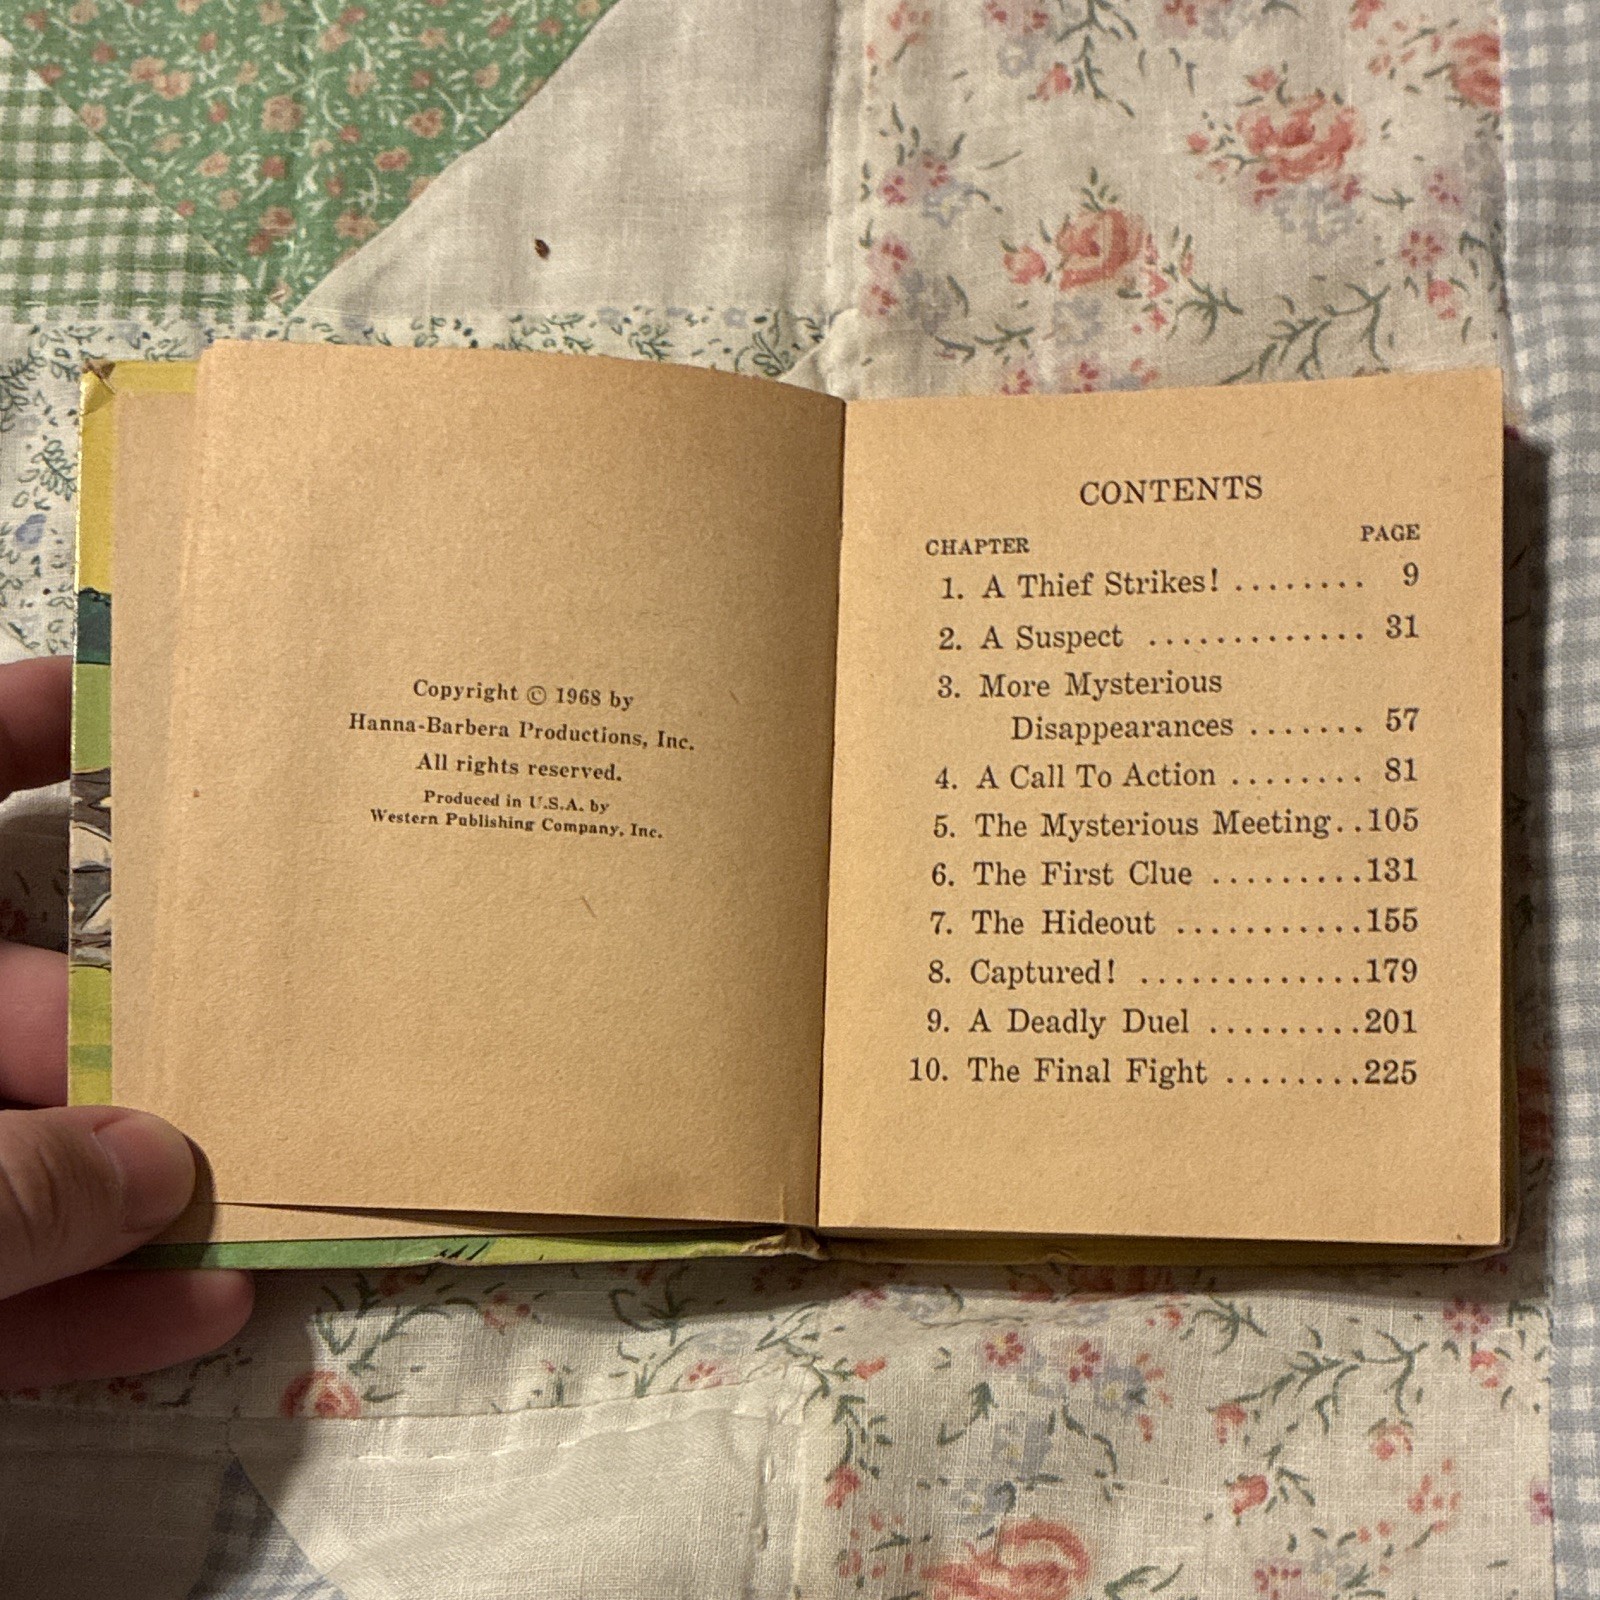 Copyright © 1968 by
Hanna-Barbera Productions, Inc.
All rights reserved.
Produced in U.S.A. by
Western Publishing Company, Inc.
CONTENTS
CHAPTER PAGE
1. A Thief Strikes! ........ 9
2. A Suspect ............. 31
3. More Mysterious
Disappearances ....... 57
4. A Call To Action ........ 81
5. The Mysterious Meeting..105
6. The First Clue .........131
7. The Hideout ...........155
8. Captured! .............179
9. A Deadly Duel .........201
10. The Final Fight ........225